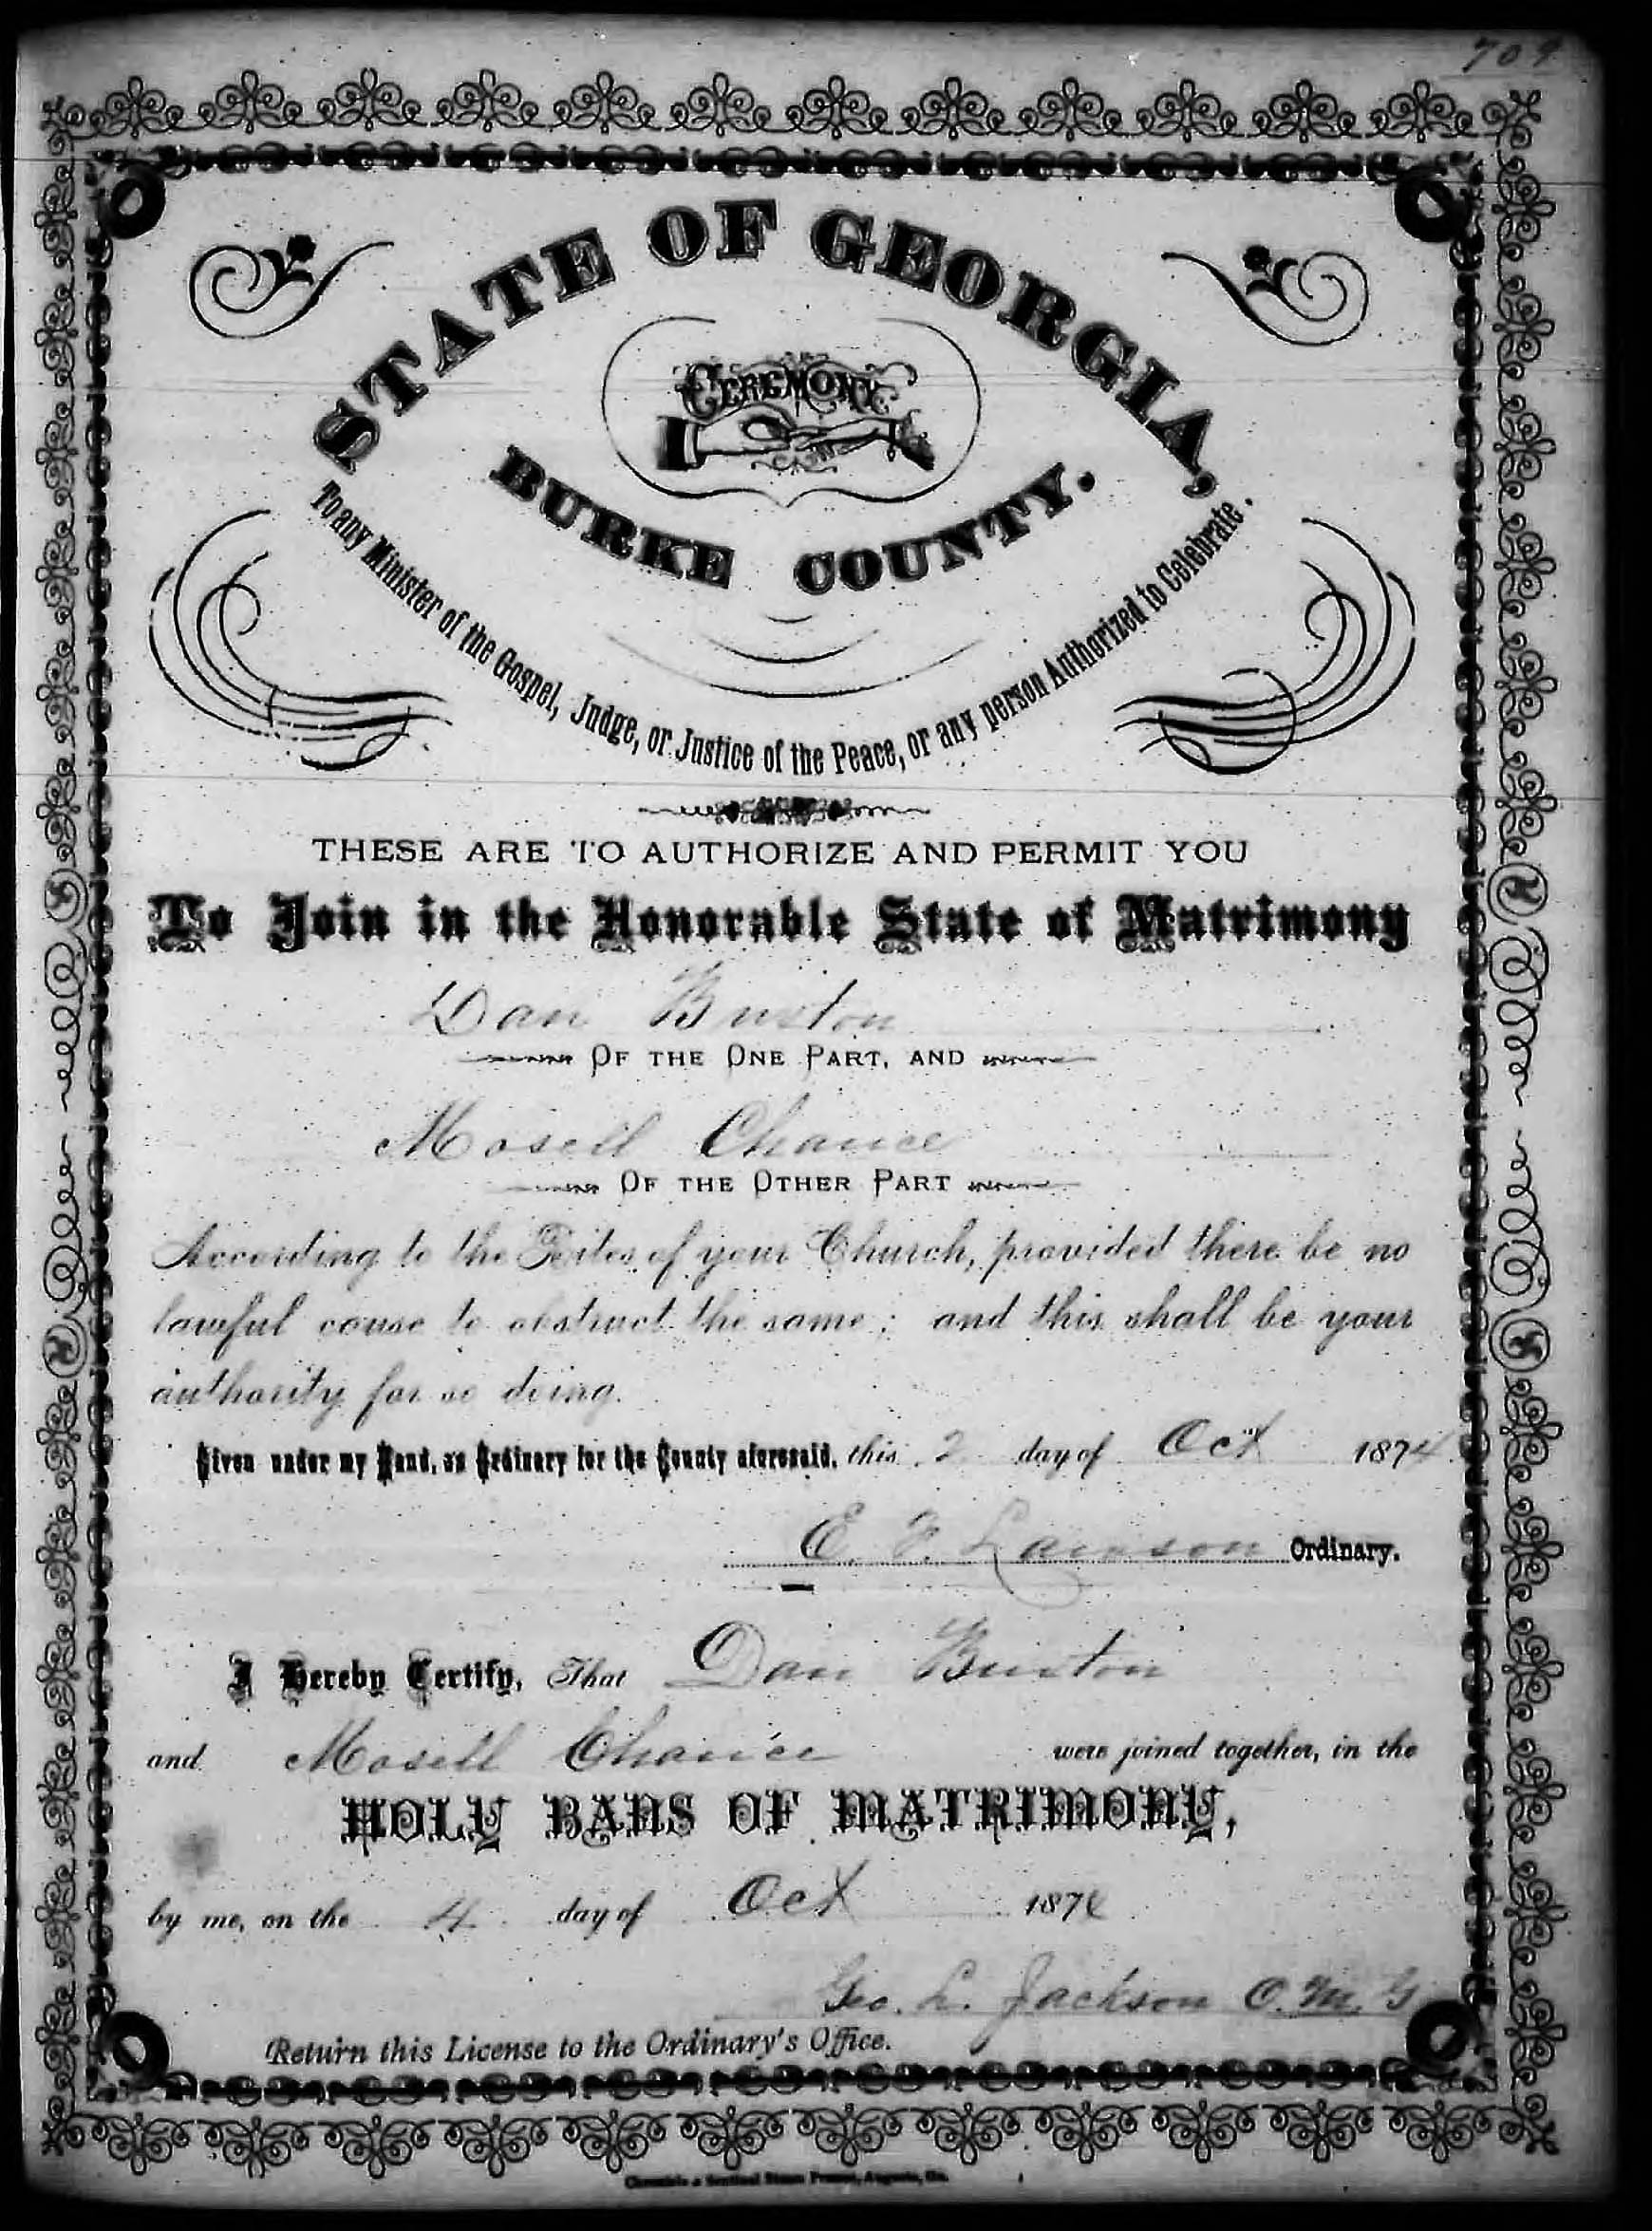 709
STATE OF GEORGIA,
CEREMONY
BURKE COUNTY.
To any Minister of the Gospel, Judge, or Justice of the Peace, or any person Authorized to Celebrate.
THESE ARE TO AUTHORIZE AND PERMIT YOU
To Join in the Honorable State of Matrimony
Dan Buxton
OF THE ONE PART, AND
Mosell Chance
OF THE OTHER PART
According to the Rites of your Church, provided there be no
lawful cause to obstruct the same; and this shall be your
authority for so doing.
Given under my Hand, as Ordinary for the County aforesaid, this 2 day of Oct 1874.
E. F. Lawson Ordinary.
I Hereby Certify, That Dan Buxton
and Mosell Chance were joined together, in the
HOLY BANS OF MATRIMONY,
by me, on the 4 day of Oct 1874
Geo. L. Jackson O. M. G
Return this License to the Ordinary's Office.
Chronicle & Sentinel Steam Presses, Augusta, Ga.